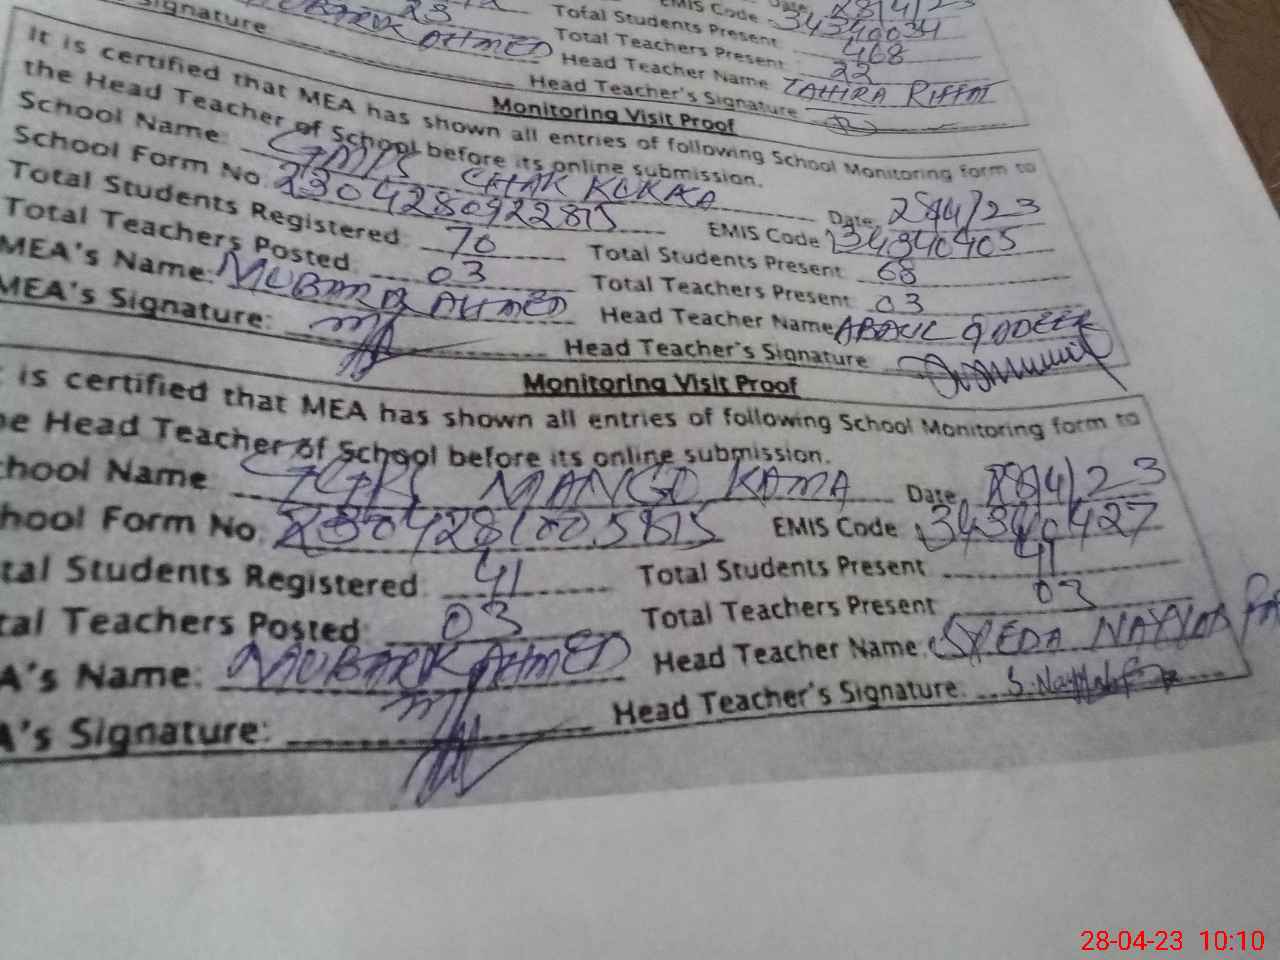 EMIS Code 34340034
Total Students Present 468
Total Teachers Present 22
Signature: AHMED Head Teacher Name TAHIRA RIFFAT
Head Teacher's Signature
Monitoring Visit Proof
It is certified that MEA has shown all entries of following School Monitoring form to
the Head Teacher of School before its online submission.
School Name: GMPS CHAK KUKKA Date 28/4/23
School Form No. EMIS Code 34340405
Total Students Registered: 70 Total Students Present 68
Total Teachers Posted: 03 Total Teachers Present 03
MEA's Name: MUBARK AHMED Head Teacher Name ABDUL QADEER
MEA's Signature: Head Teacher's Signature
Monitoring Visit Proof
is certified that MEA has shown all entries of following School Monitoring form to
he Head Teacher of School before its online submission.
chool Name GGPS MANGO KAMA Date 28/4/23
hool Form No. EMIS Code 34340427
tal Students Registered 41 Total Students Present 41
tal Teachers Posted 03 Total Teachers Present 03
A's Name: MUBARK AHMED Head Teacher Name: SYEDA
A's Signature: Head Teacher's Signature:
28-04-23 10:10